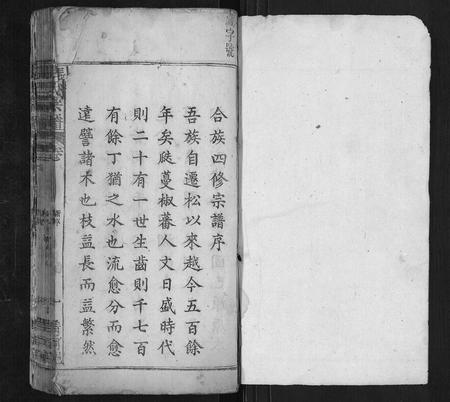 合族四修宗譜序
吾族自遷松以來越今五百餘
年矣瓞蔓椒蕃人文日盛時代
則二十有一世生齒則千七百
有餘丁猶之水也流愈分而愈
遠譬諸木也枝益長而益繁然
字號
宗譜